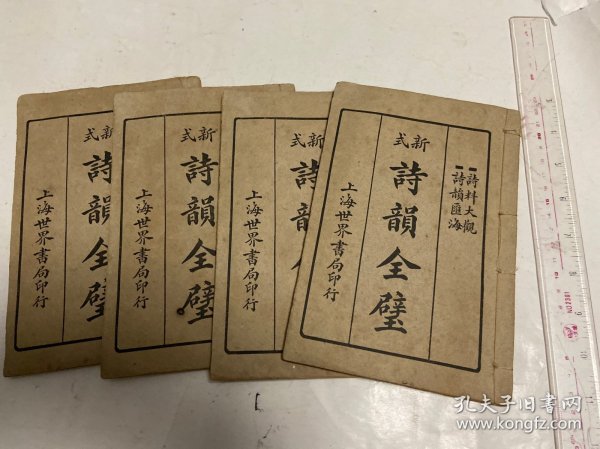 新式
詩韻全璧
上海世界書局印行
新式
詩韻全璧
上海世界書局印行
新式
詩韻全
上海世界書局印行
詩料大觀
詩韻匯海
新式
詩韻全璧
上海世界書局印行
孔夫子旧书网
www.kongfz.com